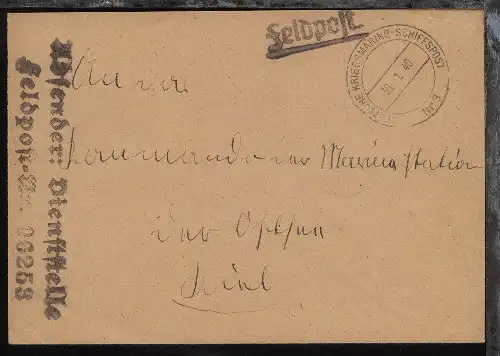 Feldpost
DEUTSCHE KRIEGSMARINE-SCHIFFSPOST
10. 1. 40
Absender: Dienststelle
Feldpost-Nr. 00253
An
Kommando der Marinestation
der Ostsee
Kiel